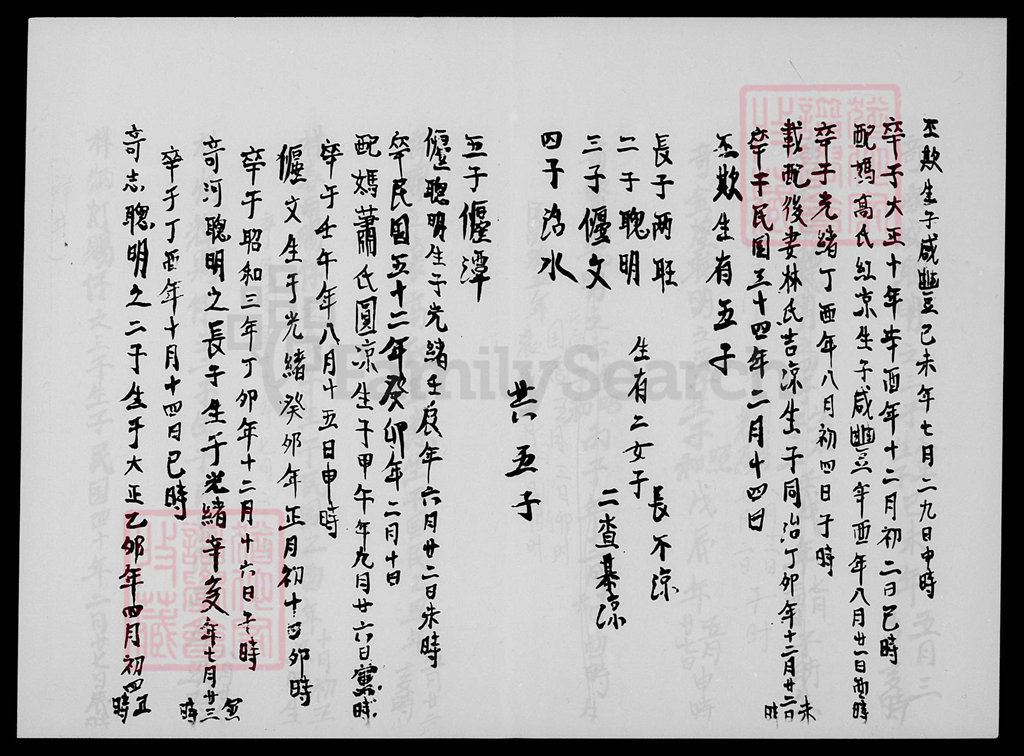 丕欺生于咸豐己未年七月二九日申時
卒于大正十年辛酉年十二月初二日巳時
配媽高氏紅凉生于咸豐辛酉年八月廿一日酉時
卒于光緒丁酉年八月初四日于時
載配後妻林氏吉凉生于同治丁卯年十二月廿二日未時
卒于民国三十四年二月十四日
丕欺生有五子
長子两旺
二子聰明
三子僱文
四子治水
五子僱潭
生有二女子
長不凉
二查某凉
共五子
僱聰明生于光緒壬辰年六月廿二日未時
卒民国五十二年癸卯年二月十日
配媽蕭氏圓凉生于甲午年九月廿六日寅時
卒午壬午年八月十五日申時
僱文生于光緒癸卯年正月初十四卯時
卒于昭和三年丁卯年十二月十六日子時
奇河聰明之長子生于光緒辛亥年七月廿三
時
卒于丁酉年十月十四日巳時
奇志聰明之二子生于大正乙卯年四月初四丑時
FamilySearch